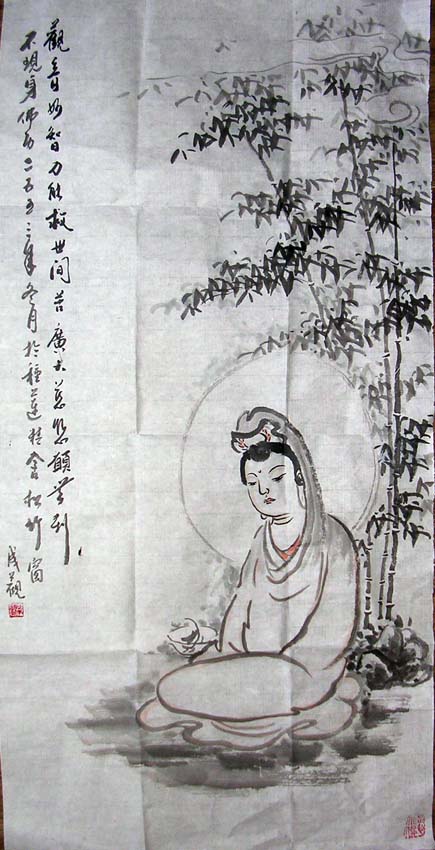 觀音妙智力能救世間苦廣大慈悲願無刹
不現身佛历二五五二年冬月於種蓮精舍松竹窗
成觀